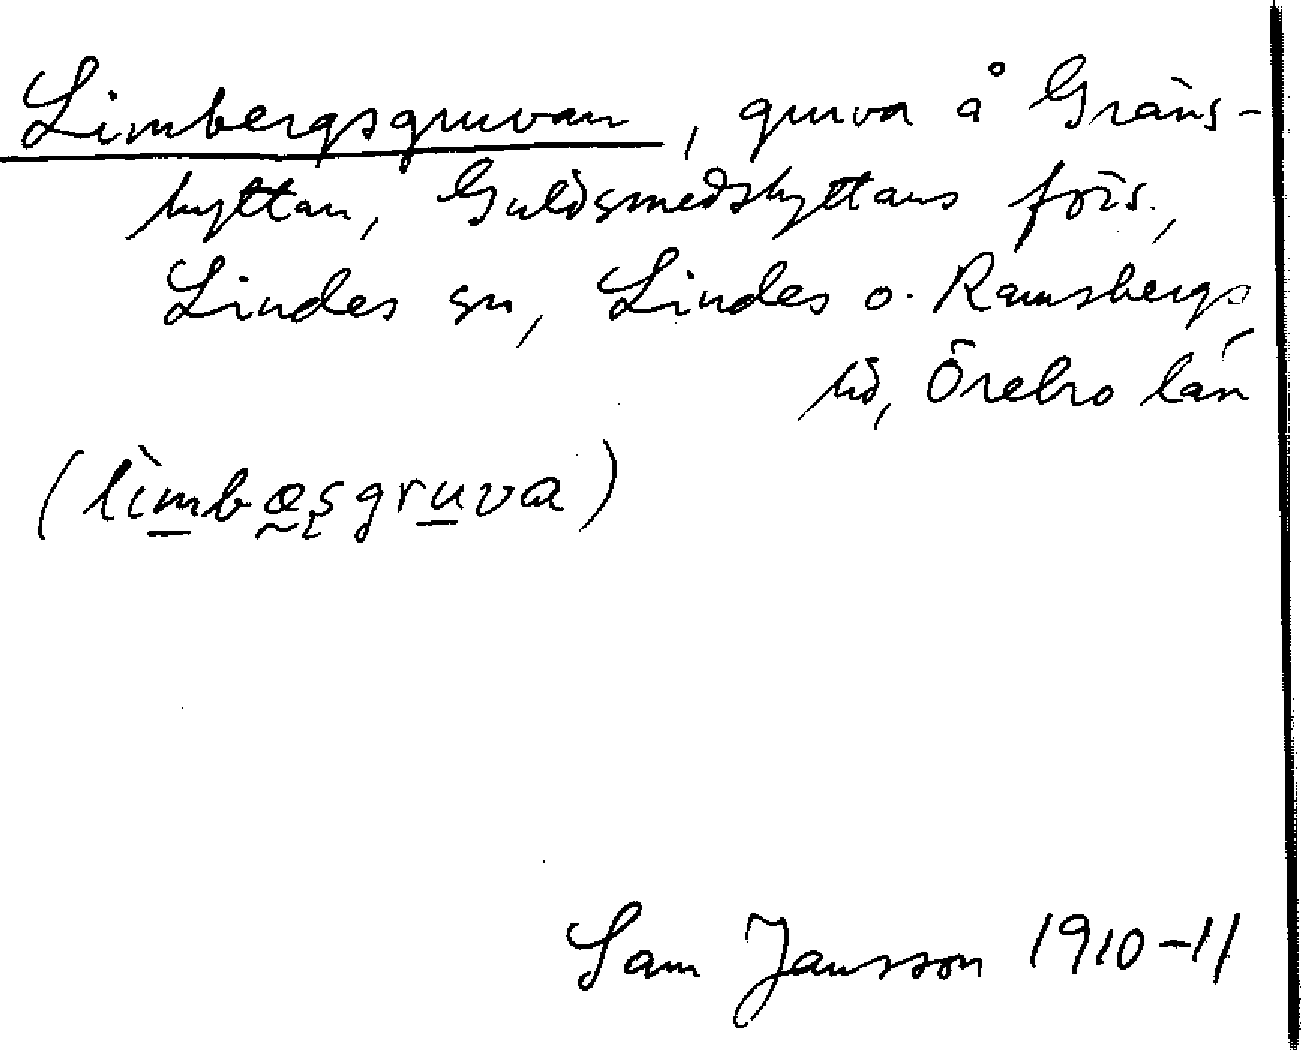 Limbergsgruvan, gruva å Gräns-
hyttan, Guldsmedshyttans förs.,
Lindes sn, Lindes o. Ramsbergs
hd, Örebro län
(lìmbæsgruva)
Sam Jansson 1910-11